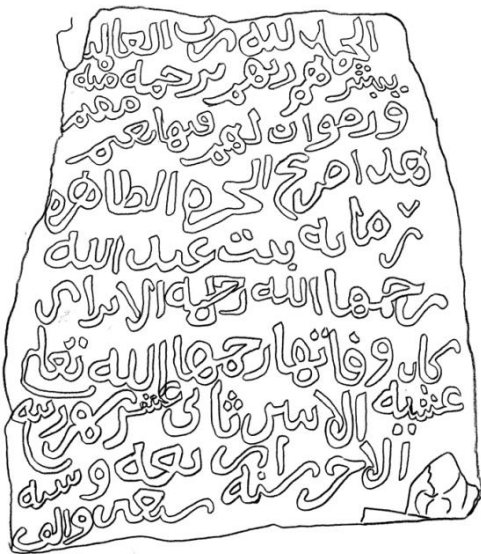 الحمد لله رب العالمين
يبشرهم ربهم برحمه منه
ورضوان لهم فيها نعيم مقيم
هذا ضريح الحره الطاهره
بنت عبد الله
رحمها الله رحمه الابرار
كان وفاتها رحمها الله تعالى
عشيه الاثنين ثاني عشر شهر ربيع
الاخر سنه اربعه
سبعين والف